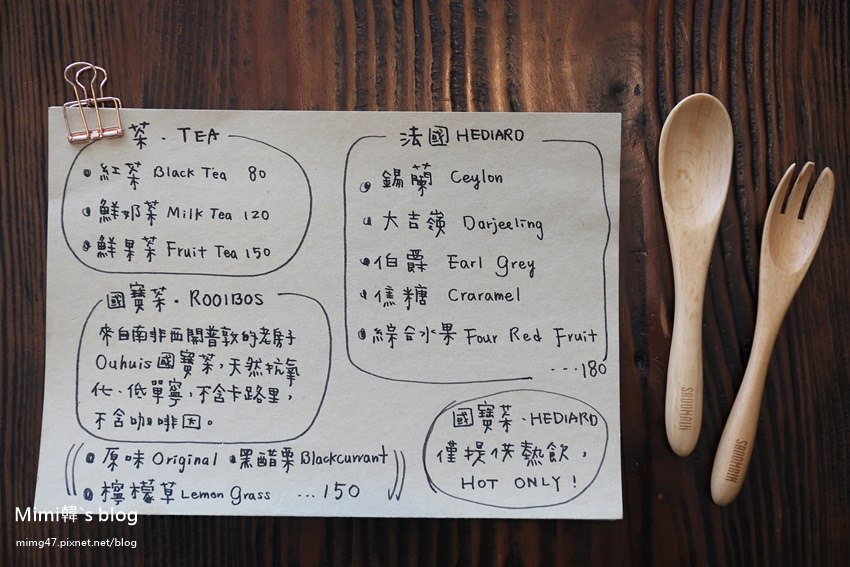 茶．TEA
紅茶 Black Tea 80
鮮奶茶 Milk Tea 120
鮮果茶 Fruit Tea 150
國寶茶．ROOIBOS
來自南非西開普敦的老房子
Ouhuis 國寶茶，天然抗氧
化、低單寧，不含卡路里，
不含咖啡因。
原味 Original 黑醋栗 Blackcurrant
檸檬草 Lemon Grass ...150
法國 HEDIARD
錫蘭 Ceylon
大吉嶺 Darjeeling
伯爵 Earl Grey
焦糖 Craramel
綜合水果 Four Red Fruit
...180
國寶茶．HEDIARD
僅提供熱飲，
HOT ONLY！
SADOMAIN
SADOMAIN
Mimi韓`s blog
mimg47.pixnet.net/blog